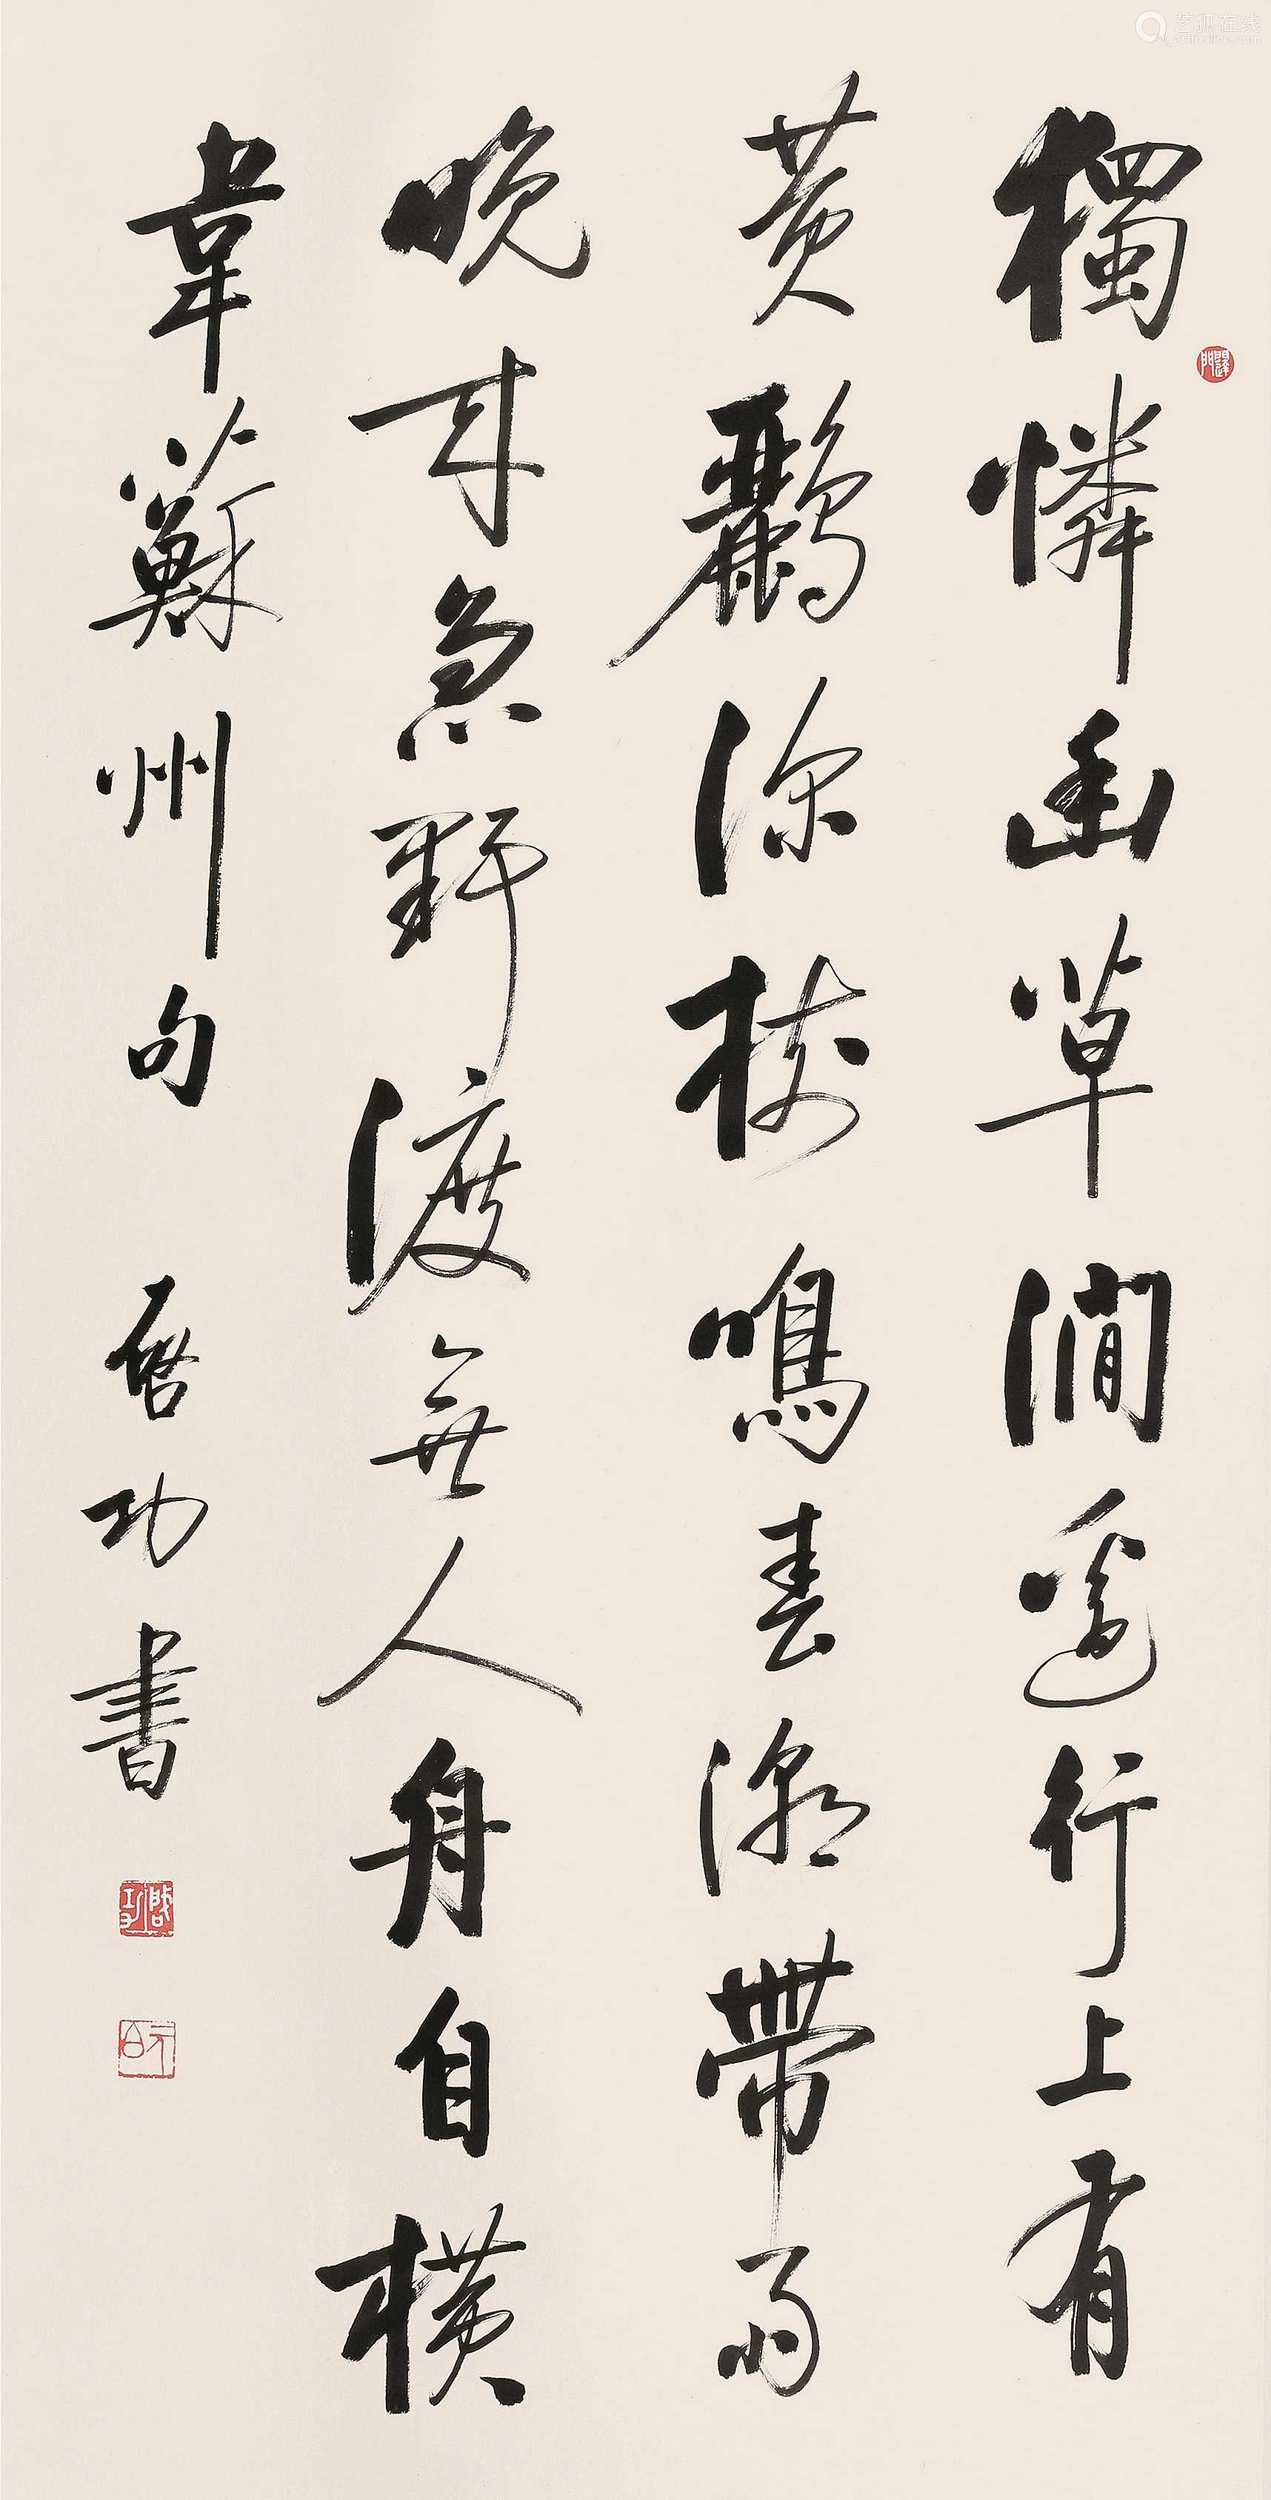 獨憐幽草澗邊行上有
黄鸝深樹鳴春潮帶雨
晚来急野渡無人舟自橫
韋蘇州句 啓功書
啟功
元白